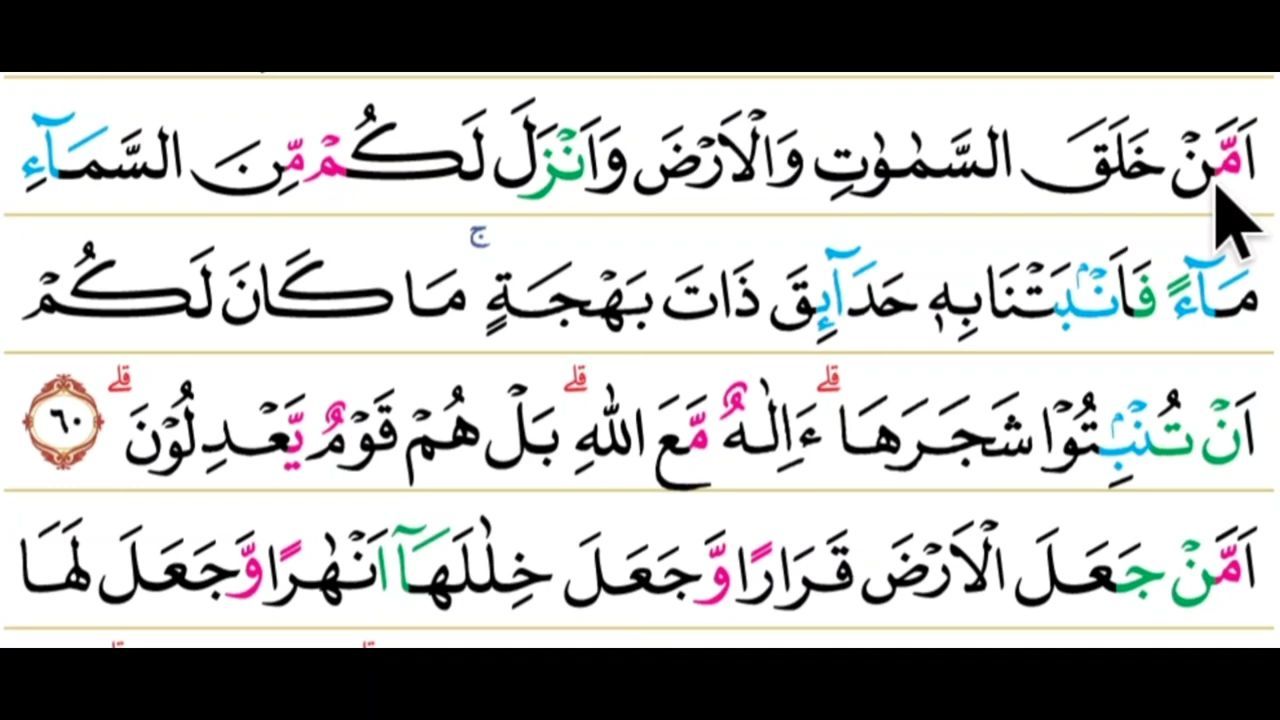 اَمَّنۡ خَلَقَ السَّمٰوٰتِ وَالۡاَرۡضَ وَاَنۡزَلَ لَكُمۡ مِّنَ السَّمَآءِ
مَآءً فَاَنۡۢبَتۡنَا بِهٖ حَدَآئِقَ ذَاتَ بَهۡجَةٍ ۚ مَا كَانَ لَكُمۡ
اَنۡ تُنۡۢبِتُوۡا شَجَرَهَا ؕ ءَاِلٰهٌ مَّعَ اللّٰهِ ؕ بَلۡ هُمۡ قَوۡمٌ يَّعۡدِلُوۡنَ ؕ ٦٠
اَمَّنۡ جَعَلَ الۡاَرۡضَ قَرَارًا وَّجَعَلَ خِلٰلَهَاۤ اَنۡهٰرًا وَّجَعَلَ لَهَا